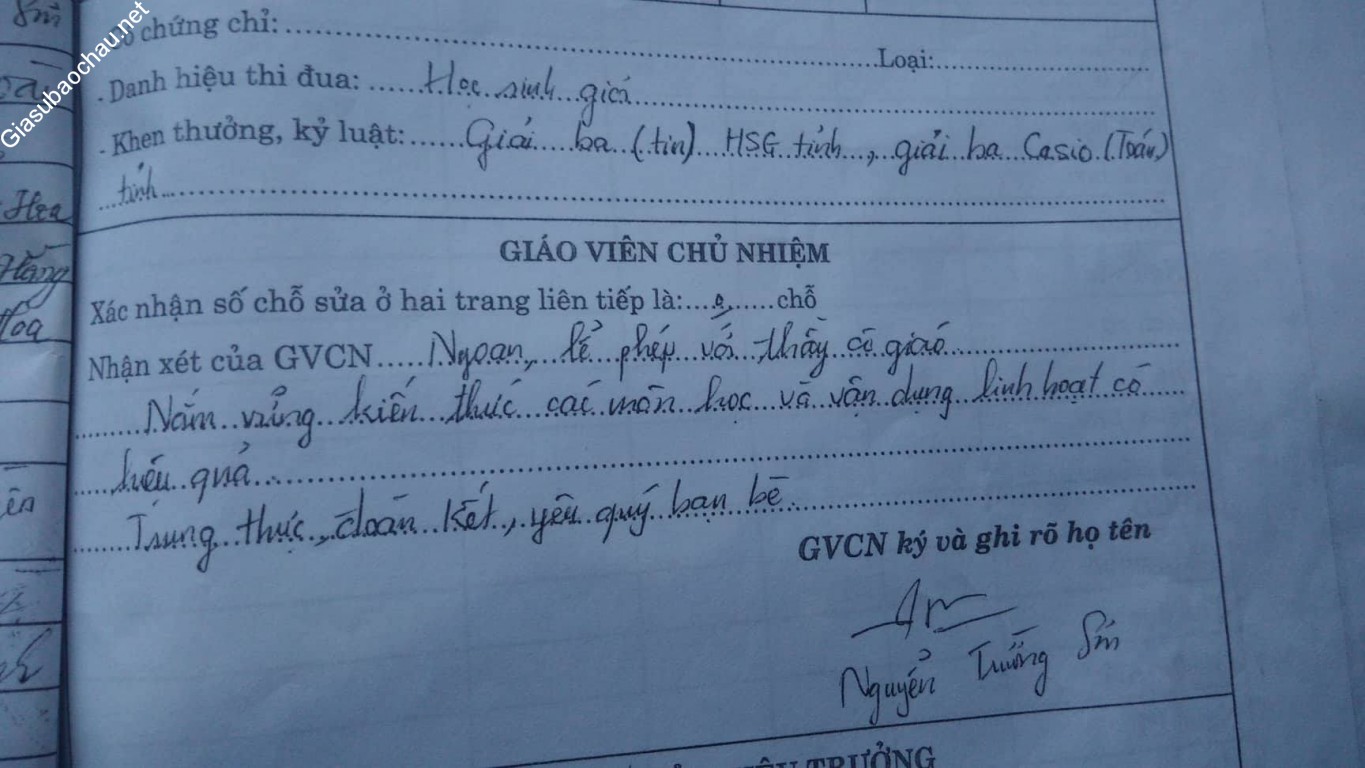 Giasubaochau.net
chứng chỉ: Loại:
. Danh hiệu thi đua: Học sinh giỏi
. Khen thưởng, kỷ luật: Giải ba (tin) HSG tỉnh, giải ba Casio (Toán)
tỉnh
GIÁO VIÊN CHỦ NHIỆM
Xác nhận số chỗ sửa ở hai trang liên tiếp là: chỗ
Nhận xét của GVCN Ngoan, lễ phép với thầy cô giáo
Nắm vững kiến thức các môn học và vận dụng linh hoạt có
hiệu quả
Trung thực, đoàn kết, yêu quý bạn bè
GVCN ký và ghi rõ họ tên
Nguyễn Trường Sơn
TRƯỞNG
Hoa
Hằng
Hoa